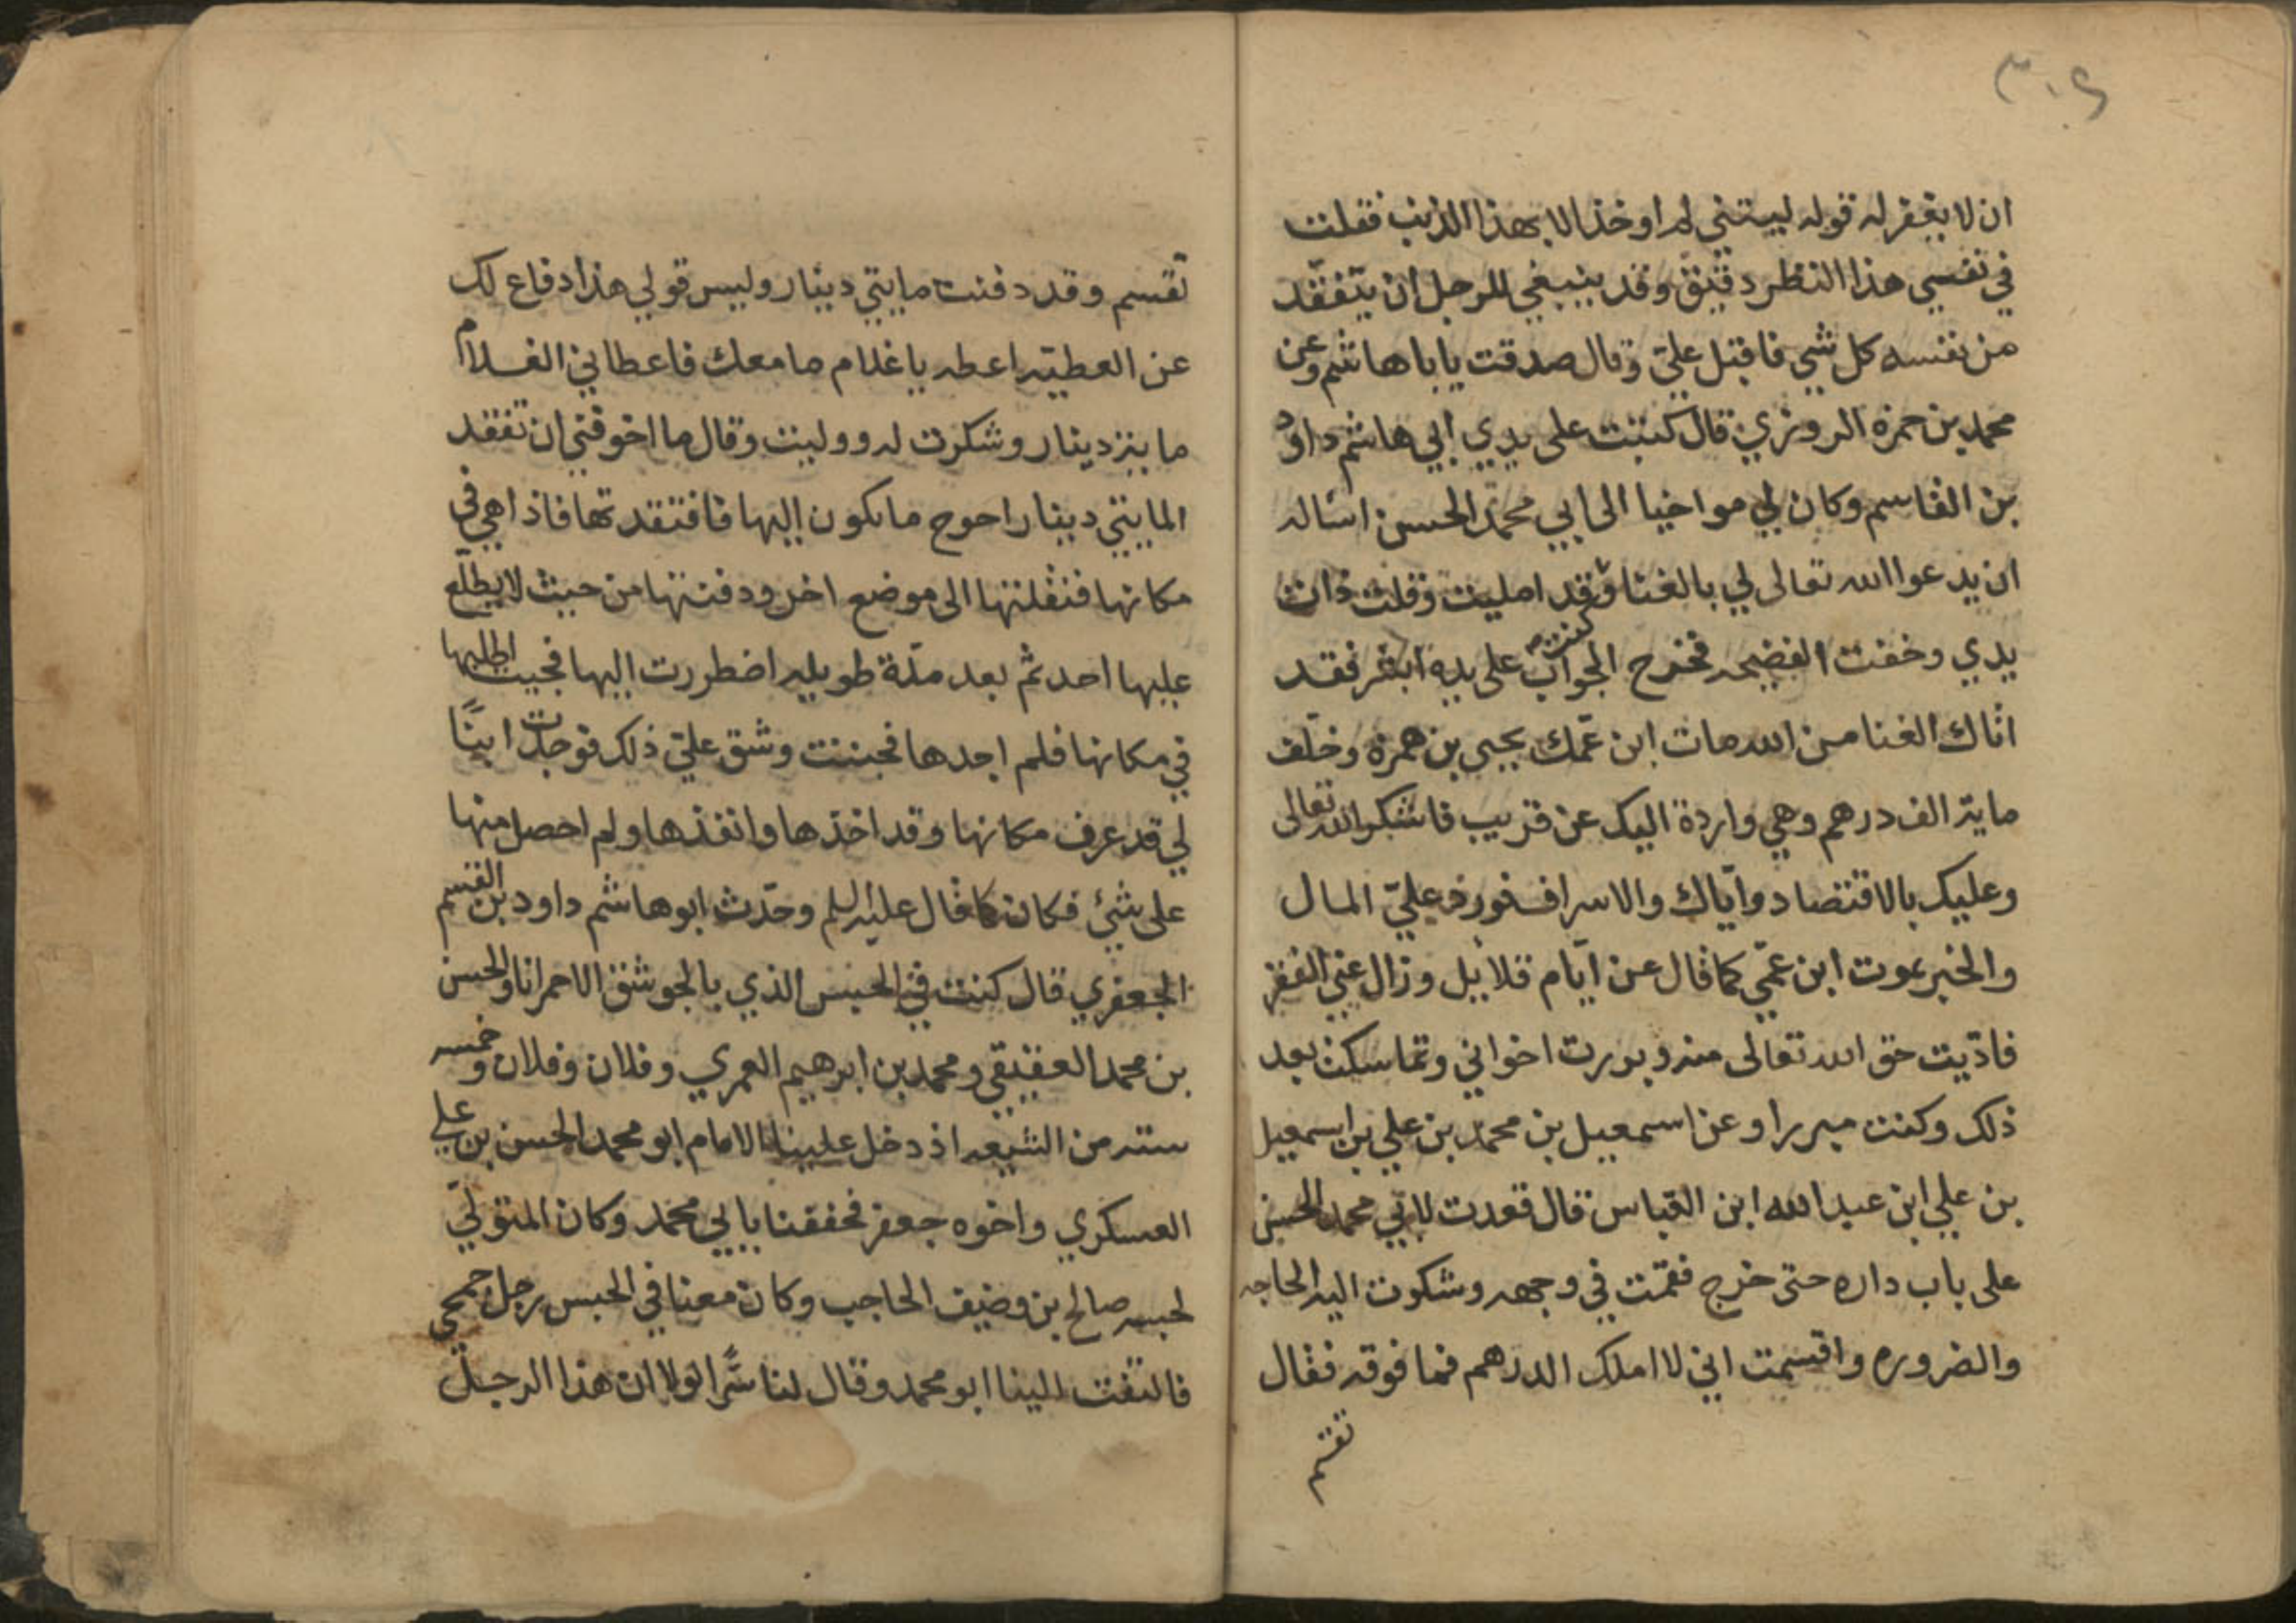 ٣٠٩
ان لا يغفر له قوله ليتني لم اوخذ الا بهذا الذنب فقلت
في نفسي هذا النظر دقيق وقد ينبغي للرجل ان يتفقد
من نفسه كل شي فاقبل عليّ وقال صدقت يا باهاشم وعن
محمد بن حمزه الروزي قال كتبت على يدي ابي هاشم داود
بن القاسم وكان لي مواخيا الى ابي محمد الحسن اساله
ان يدعوا الله تعالى لي بالغنا وقد امليت وقلت ذات
يدي وخفت الفضيحه فخرج الجواب على يده ابشر فقد
اتاك الغنا من الله مات ابن عمّك يحيى بن حمزه وخلّف
ماية الف درهم وهي واردة اليك عن قريب فاشكر الله تعالى
وعليك بالاقتصاد وايّاك والاسراف فورد عليّ المال
والخبر بموت ابن عمّي كما قال عن ايّام قلايل وزال عني الفقر
فادّيت حق الله تعالى منه وبررت اخواني وتماسكت بعد
ذلك وكنت مبررا وعن اسمعيل بن محمد بن علي بن اسمعيل
بن علي ابن عبد الله ابن العباس قال قعدت لابي محمد الحسن
على باب داره حتى خرج فقمت في وجهه وشكوت اليه الحاجه
والضروره واقسمت اني لا املك الدرهم فما فوقه فقال
تقسم
تقسم وقد دفنت مايتي دينار وليس قولي هذا دفاع لك
عن العطيّه اعطه يا غلام ما معك فاعطاني الغلام
ماية دينار وشكرت له ووليت وقال ما اخوفني ان تفقد
المايتي دينار احوج ما تكون اليها فافتقدتها فاذا هي في
مكانها فنقلتها الى موضع اخر ودفنتها من حيث لا يطلع
عليها احد ثم بعد مدّة طويله اضطررت اليها فجيت اطلبها
في مكانها فلم اجدها فجننت وشق عليّ ذلك فوجدت ابنًا
لي قد عرف مكانها وقد اخذها وانفذها ولم احصل منها
على شئ فكان كما قال عليه السلم وحدّث ابو هاشم داود بن القسم
الجعفري قال كنت في الحبس الذي بالجوشق الاحمر انا والحسن
بن محمد العقيقي ومحمد بن ابرهيم العمري وفلان وفلان وخمسه
سته من الشيعه اذ دخل علينا الامام ابو محمد الحسن بن علي
العسكري واخوه جعفر فحففنا بابي محمد وكان المتولّي
لحبسه صالح بن وضيف الحاجب وكان معنا في الحبس رجل جمحي
فالتفت الينا ابو محمد وقال لنا سرًّا لولا ان هذا الرجل